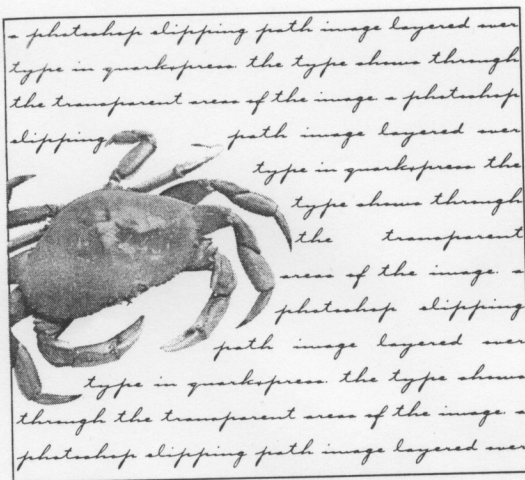 a photoshop clipping path image layered over
type in quarkxpress. the type shows through
the transparent areas of the image. a photoshop
clipping path image layered over
type in quarkxpress. the
type shows through
the transparent
areas of the image. a
photoshop clipping
path image layered over
type in quarkxpress. the type shows
through the transparent areas of the image. a
photoshop clipping path image layered over